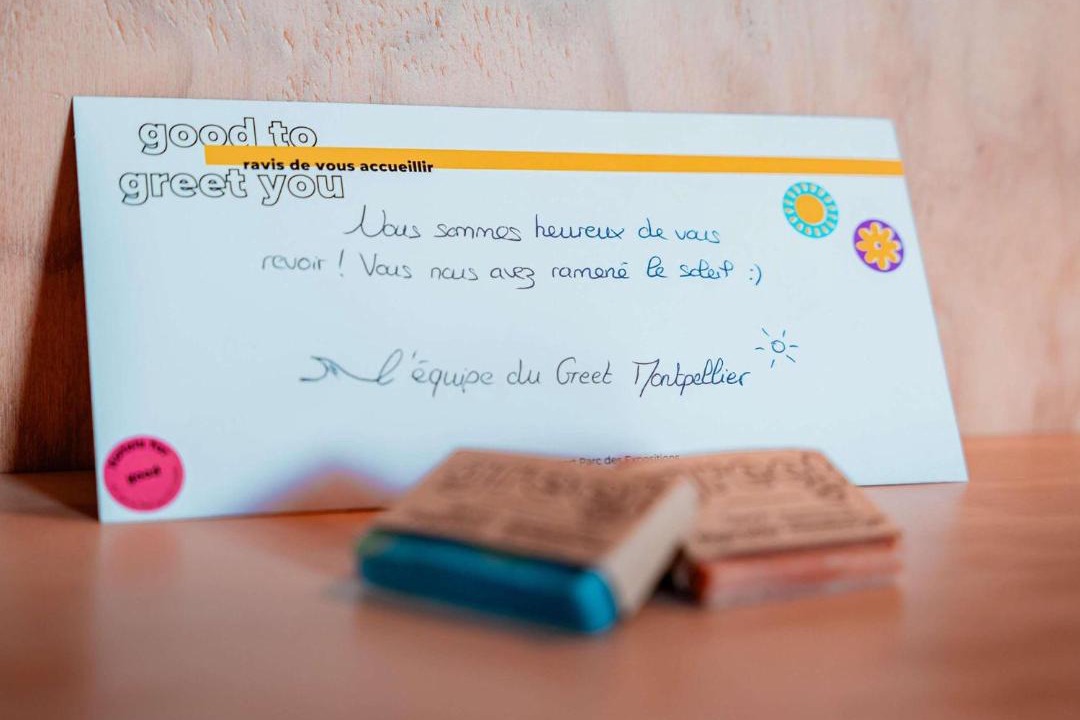 good to
ravis de vous accueillir
greet you
Nous sommes heureux de vous
revoir ! Vous nous avez ramené le soleil :)
l'équipe du Greet Montpellier
Parc des Expositions
good